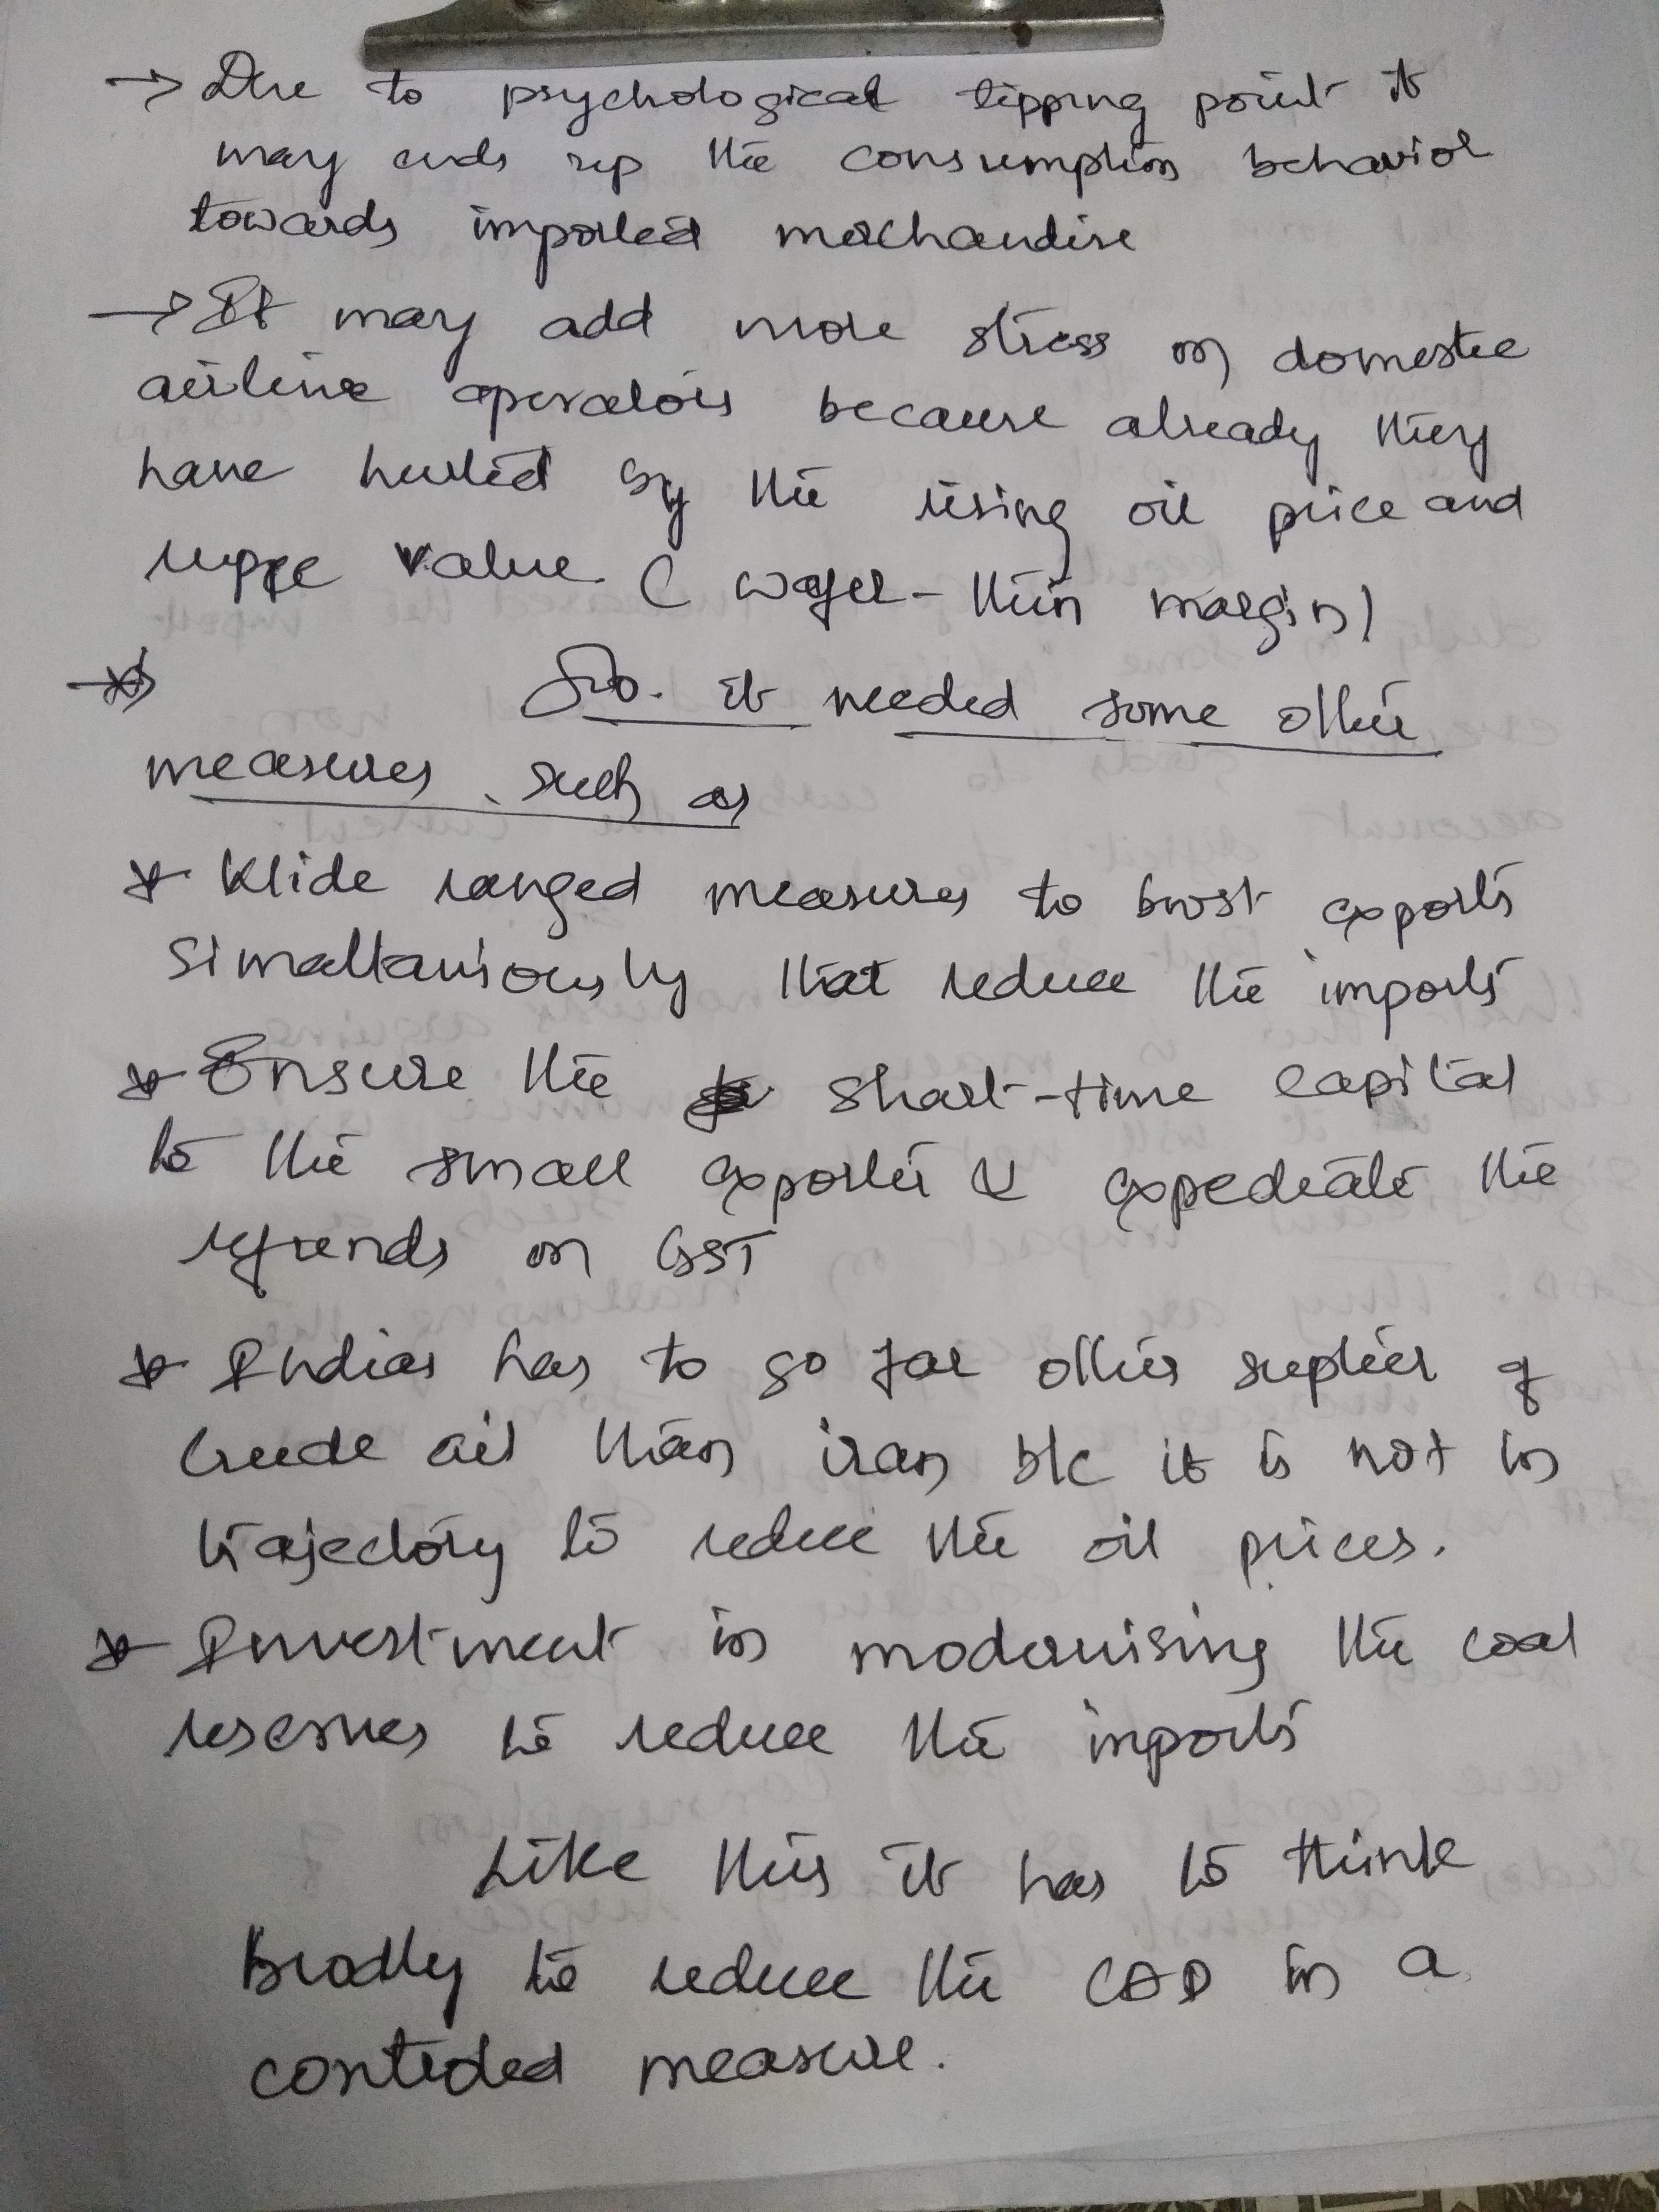 → Due to psychological tipping point it
may ends up the consumption behavior
towards imported merchandise
→ It may add more stress on domestic
airline operators because already they
have hurted by the rising oil price and
ruppe value. ( wafer-thin margin)
So. it needed some other
measures, such as
* Wide ranged measures to bost exports
simaltaniously that reduce the imports
* Ensure the short-time capital
to the small exporter & expediate the
refunds on GST
* Indias has to go for other suplier of
Crude oil than iran b/c it is not in
trajectory to reduce the oil prices.
* Investment in modernising the coal
reserves to reduce the imports
Like this it has to think
Brodly to reduce the CAD in a
measure.